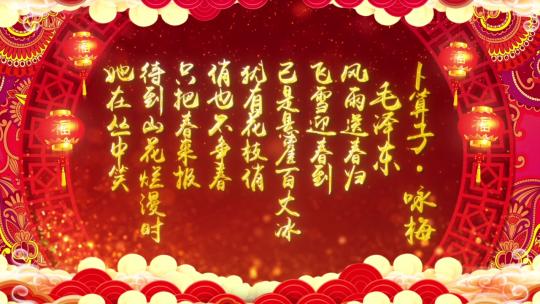 卜算子·咏梅
毛泽东
风雨送春归
飞雪迎春到
已是悬崖百丈冰
犹有花枝俏
俏也不争春
只把春来报
待到山花烂漫时
她在丛中笑
福
福
福
福